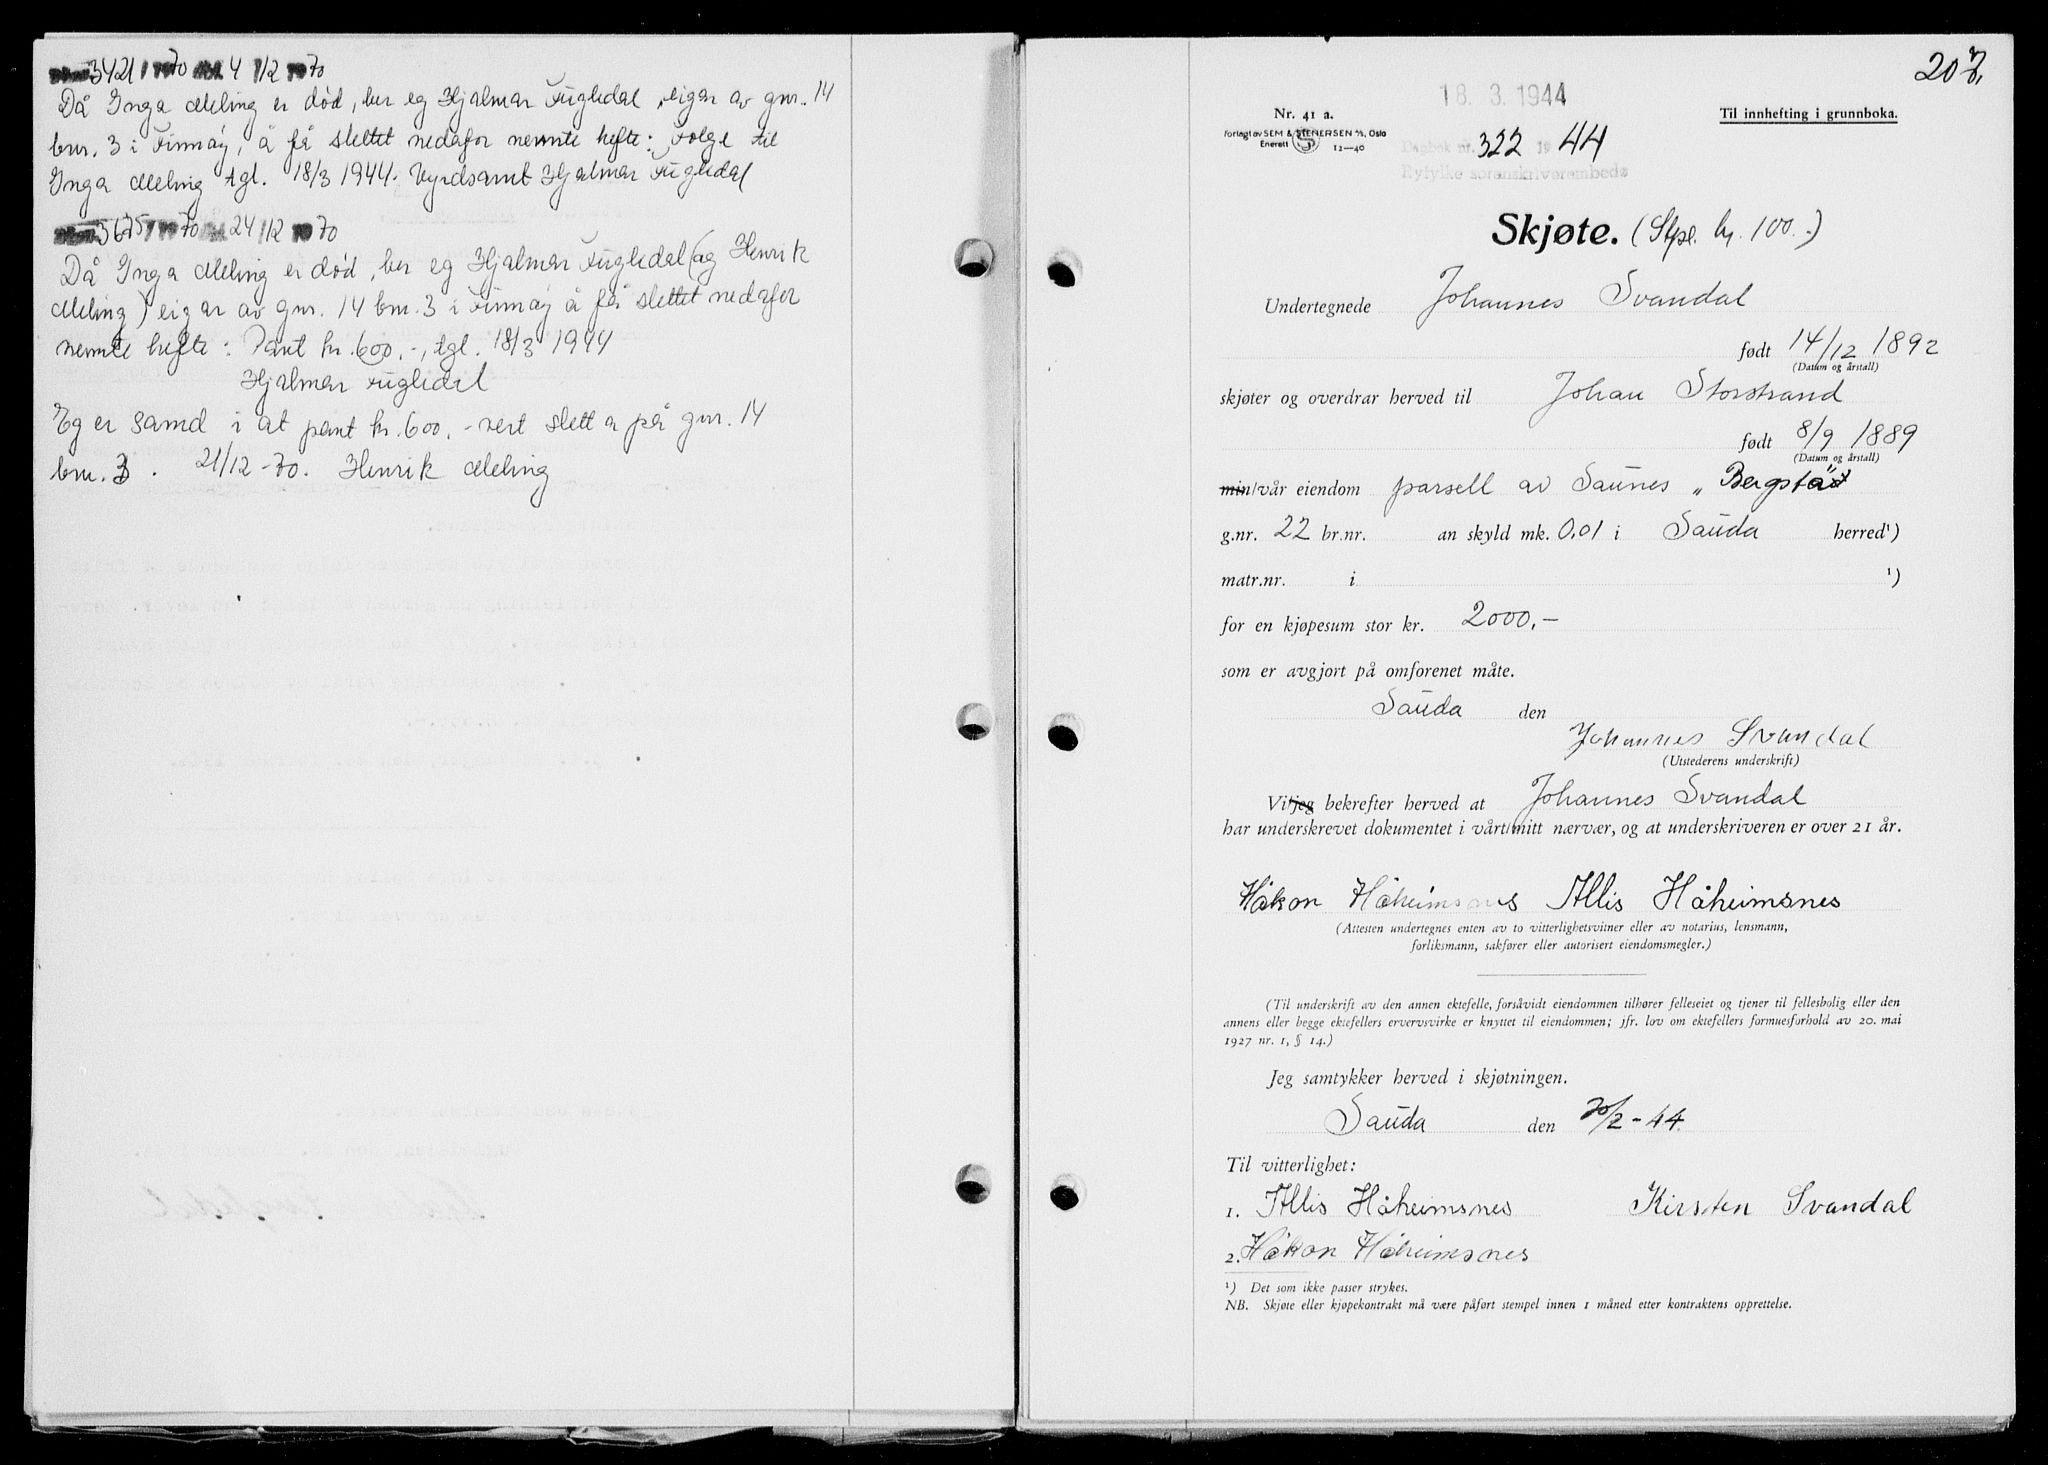 3421/1970 4/12 1970
Då Inga Meling er død, ber eg Hjalmar Fugledal, eigar av gnr. 14
bnr. 3 i Finnøy, å få slettet nedafor nemnte hefte: Folge til
Inga Meling tgl. 18/3 1944. Vyrdsamt Hjalmar Fugledal
5675/1970 24/12 1970
Då Inga Meling er død, ber eg Hjalmar Fugledal (og Henrik
Meling) eigar av gnr. 14 bnr. 3 i Finnøy å få slettet nedafor
nemnte hefte: Pant kr. 600,-, tgl. 18/3 1944
Hjalmar Fugledal
Eg er samd i at pant kr. 600,- vert sletta på gnr. 14
bnr. 3. 21/12-70. Henrik Meling
207.
18. 3. 1944
Nr. 41 a.
Til innhefting i grunnboka.
Forlagt av SEM & STENERSEN A/S, Oslo
Enerett S 12—40
Dagbok nr. 322 19 44
Ryfylke sorenskriverembede
Skjøte. (Stpl. kr. 100.-)
Undertegnede Johannes Svandal
født 14/12 1892
(Datum og årstall)
skjøter og overdrar herved til Johan Storstrand
født 8/9 1889
(Datum og årstall)
min/vår eiendom parsell av Saunes „Bergstad"
g.nr. 22 br.nr. an skyld mk. 0,01 i Sauda herred¹)
matr.nr. i ¹)
for en kjøpesum stor kr. 2000,-
som er avgjort på omforenet måte.
Sauda den
Johannes Svandal
(Utstederens underskrift)
Vi/jeg bekrefter herved at Johannes Svandal
har underskrevet dokumentet i vårt/mitt nærvær, og at underskriveren er over 21 år.
Håkon Håheimsnes Allis Håheimsnes
(Attesten undertegnes enten av to vitterlighetsvitner eller av notarius, lensmann,
forliksmann, sakfører eller autorisert eiendomsmegler.)
(Til underskrift av den annen ektefelle, forsåvidt eiendommen tilhører felleseiet og tjener til fellesbolig eller den
annens eller begge ektefellers ervervsvirke er knyttet til eiendommen; jfr. lov om ektefellers formuesforhold av 20. mai
1927 nr. 1, § 14.)
Jeg samtykker herved i skjøtningen.
Sauda den 20/2-44
Til vitterlighet:
1. Allis Håheimsnes Kirsten Svandal
2. Håkon Håheimsnes
¹) Det som ikke passer strykes.
NB. Skjøte eller kjøpekontrakt må være påført stempel innen 1 måned etter kontraktens opprettelse.